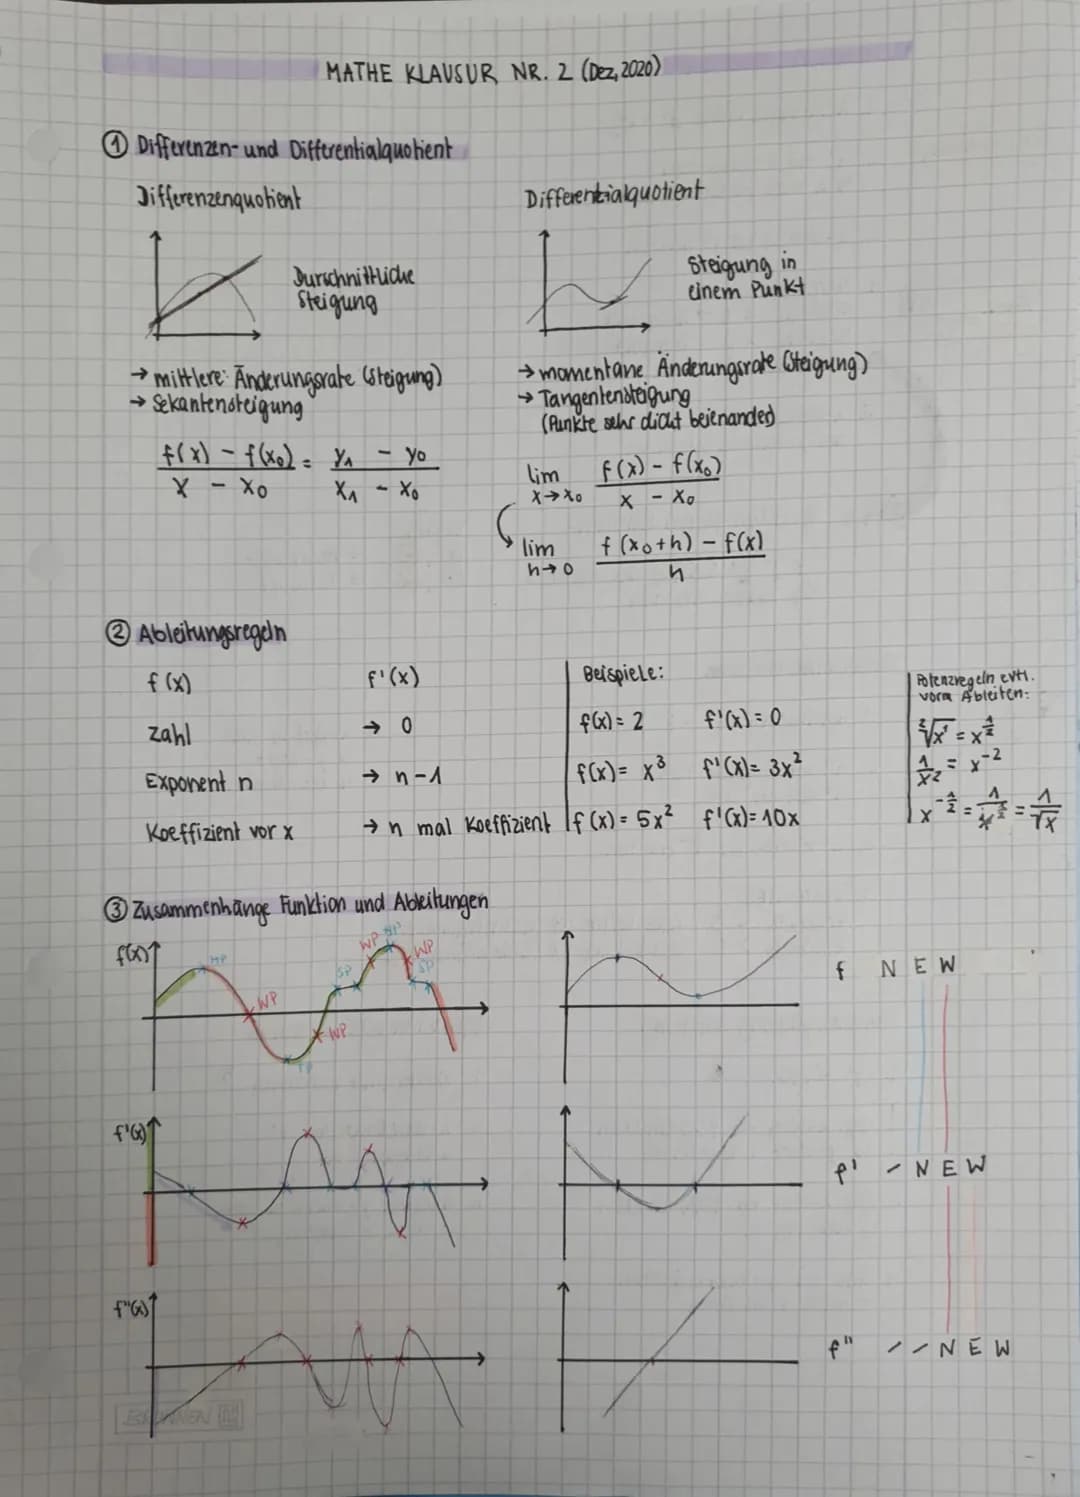 MATHE KLAUSUR NR. 2 (Dez, 2020)
① Differenzen- und Differentialquotient
Differenzenquotient
Durschnittliche
Steigung
→ mittlere: Änderungsrate (Steigung)
→ Sekantensteigung
f(x) - f(x₀) / x - x₀ = y₁ - y₀ / x₁ - x₀
Differentialquotient
Steigung in
einem Punkt
→ momentane Änderungsrate (Steigung)
→ Tangentensteigung
(Punkte sehr dicht beienander)
lim x→x₀ f(x) - f(x₀) / x - x₀
lim h→0 f(x₀+h) - f(x) / h
② Ableitungsregeln
f(x) f'(x)
Zahl → 0
Exponent n → n-1
Koeffizient vor x → n mal Koeffizient
Beispiele:
f(x) = 2 f'(x) = 0
f(x) = x³ f'(x) = 3x²
f(x) = 5x² f'(x) = 10x
Potenzregeln evtl.
vorm Ableiten:
²√x¹ = x^1/2
1/x² = x^-2
x^-1/2 = 1/x^1/2 = 1/√x
③ Zusammenhänge Funktion und Ableitungen
f(x)
HP
WP
TP
WP
SP
WP
HP
WP
SP
f N E W
f'(x)
f' - N E W
f''(x)
f'' - - N E W
BRUNNEN